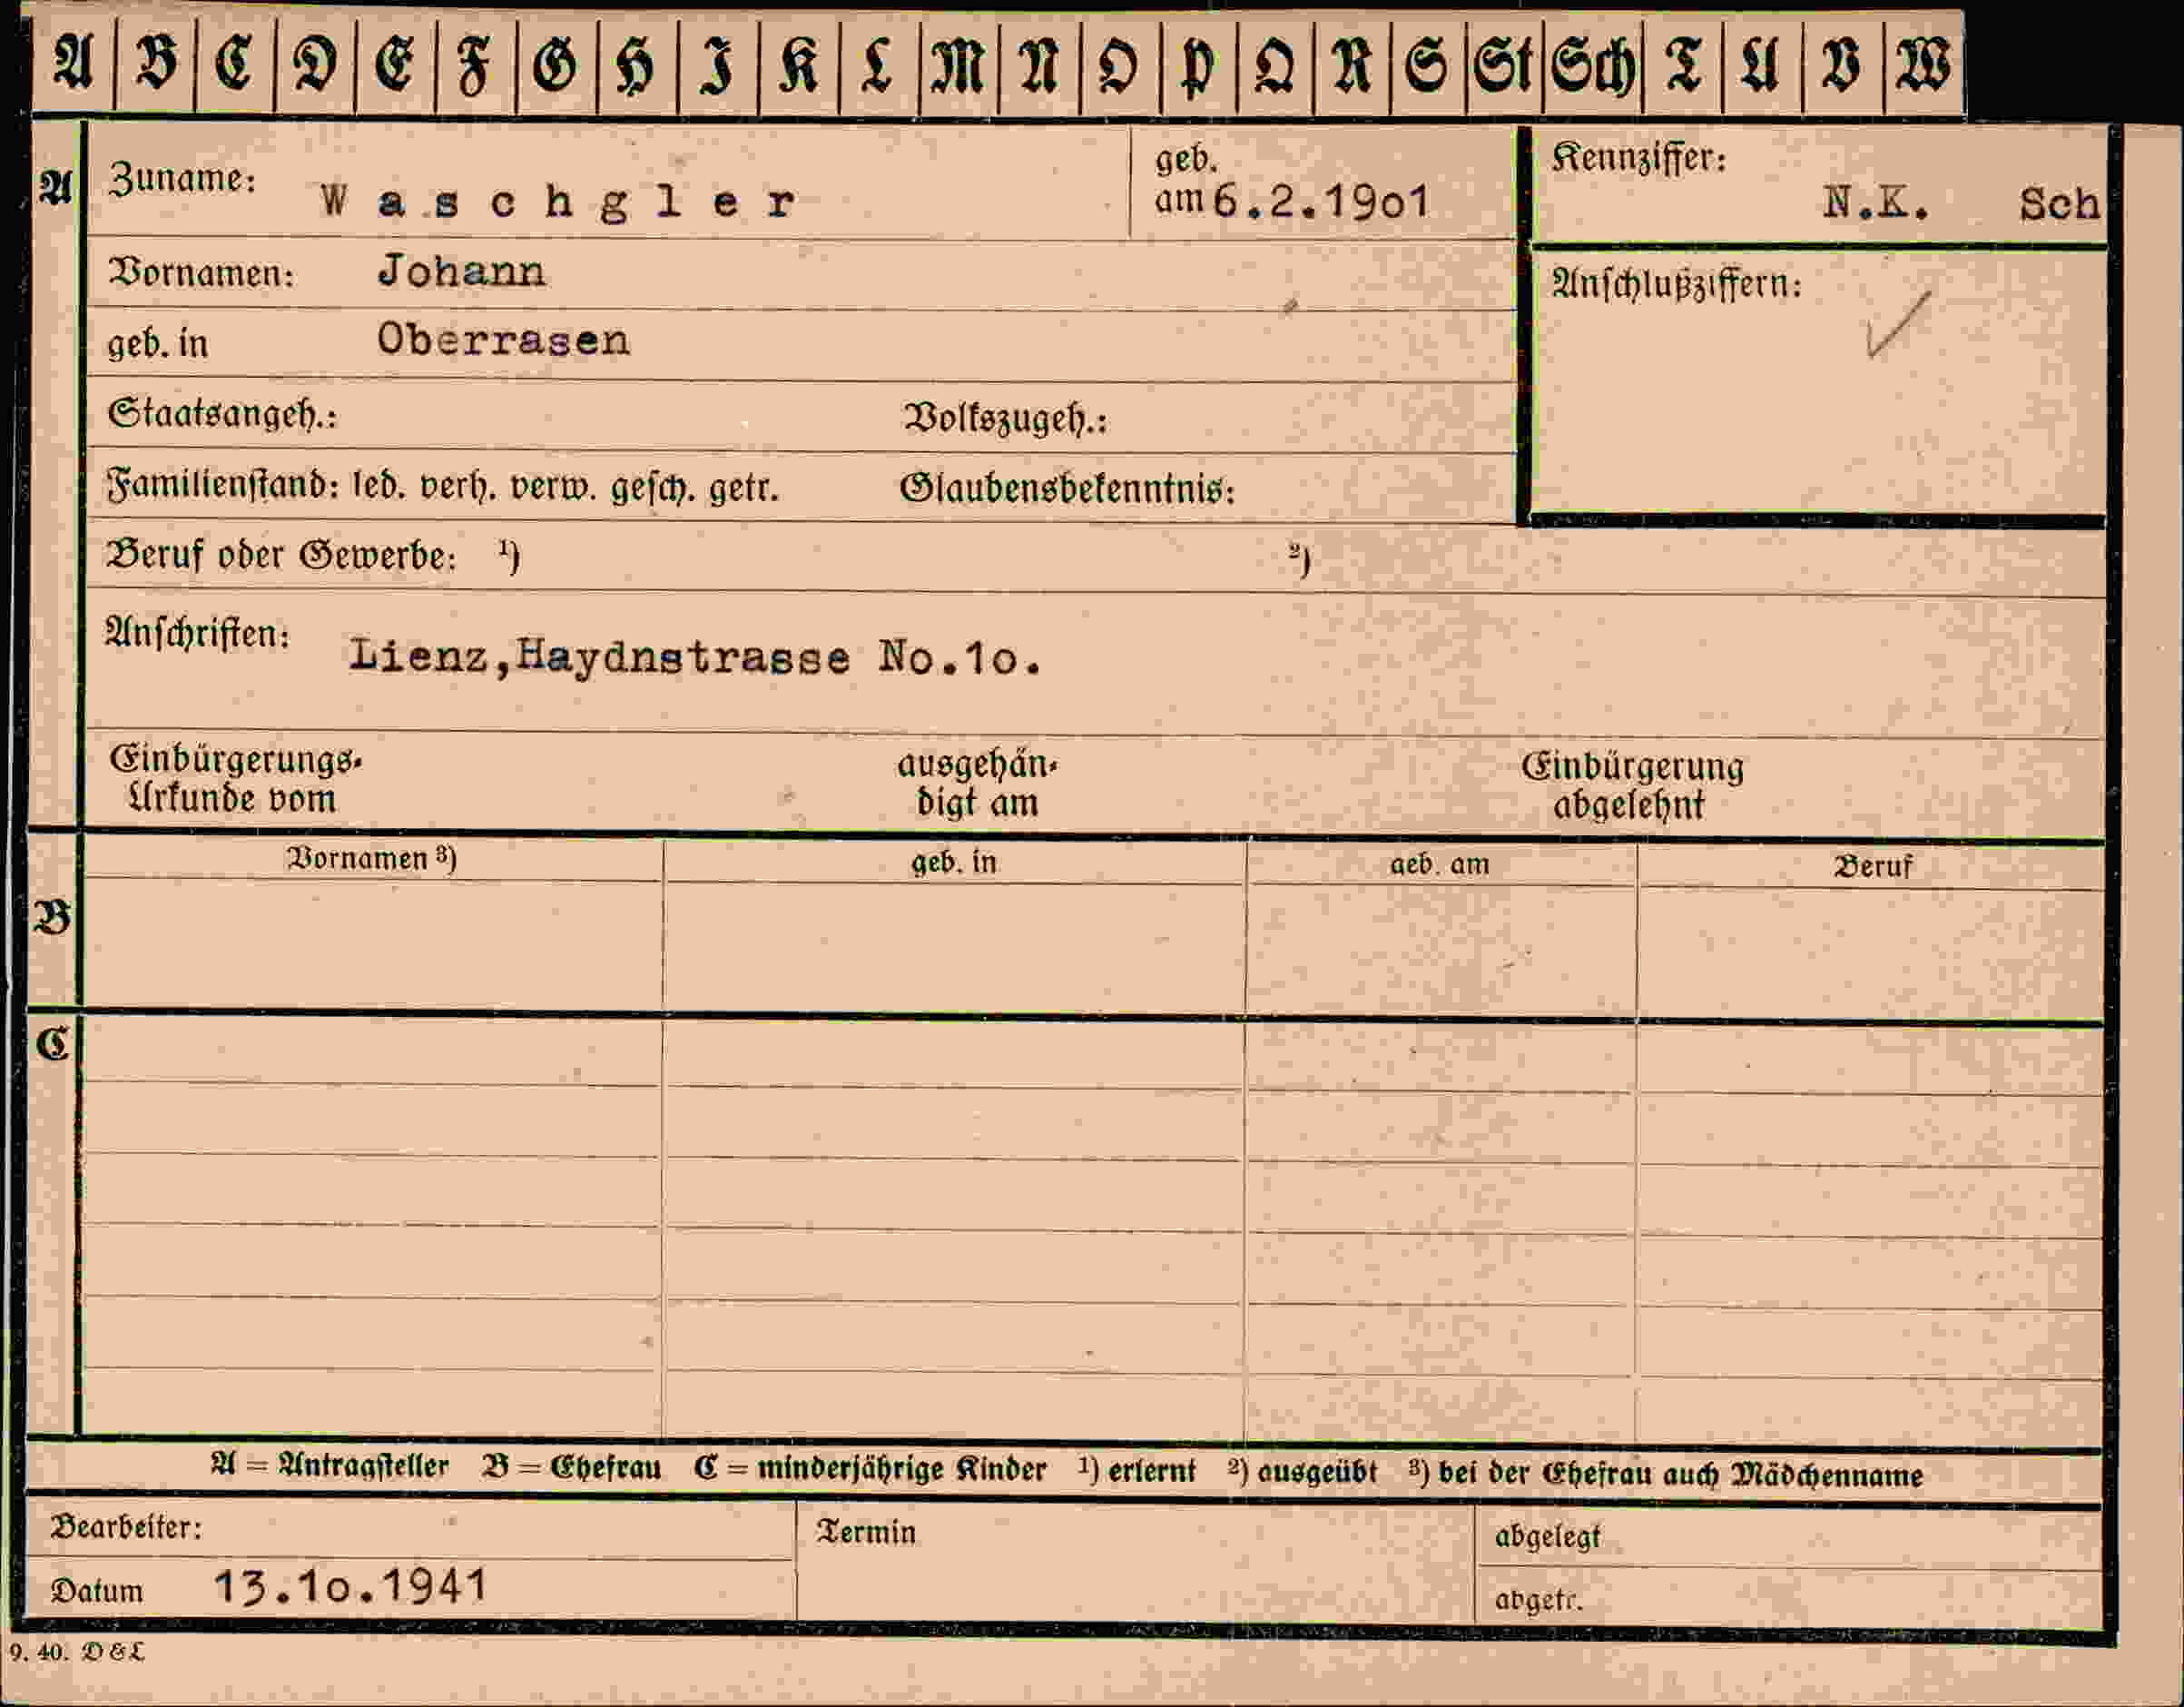 A B C D E F G H I K L M N O P Q R S St Sch T U V W
A Zuname: Waschgler geb. am 6.2.19o1 Kennziffer: N.K. Sch
Vornamen: Johann Anschlußziffern: ✓
geb. in Oberrasen
Staatsangeh.: Volkszugeh.:
Familienstand: led. verh. verw. gesch. getr. Glaubensbekenntnis:
Beruf oder Gewerbe: ¹) ²)
Anschriften: Lienz,Haydnstrasse No.1o.
Einbürgerungs- ausgehän- Einbürgerung
Urkunde vom digt am abgelehnt
Vornamen ³) geb. in geb. am Beruf
B
C
A = Antragsteller B = Ehefrau C = minderjährige Kinder ¹) erlernt ²) ausgeübt ³) bei der Ehefrau auch Mädchenname
Bearbeiter: Termin abgelegt
Datum 13.1o.1941 abgetr.
9. 40. D & L